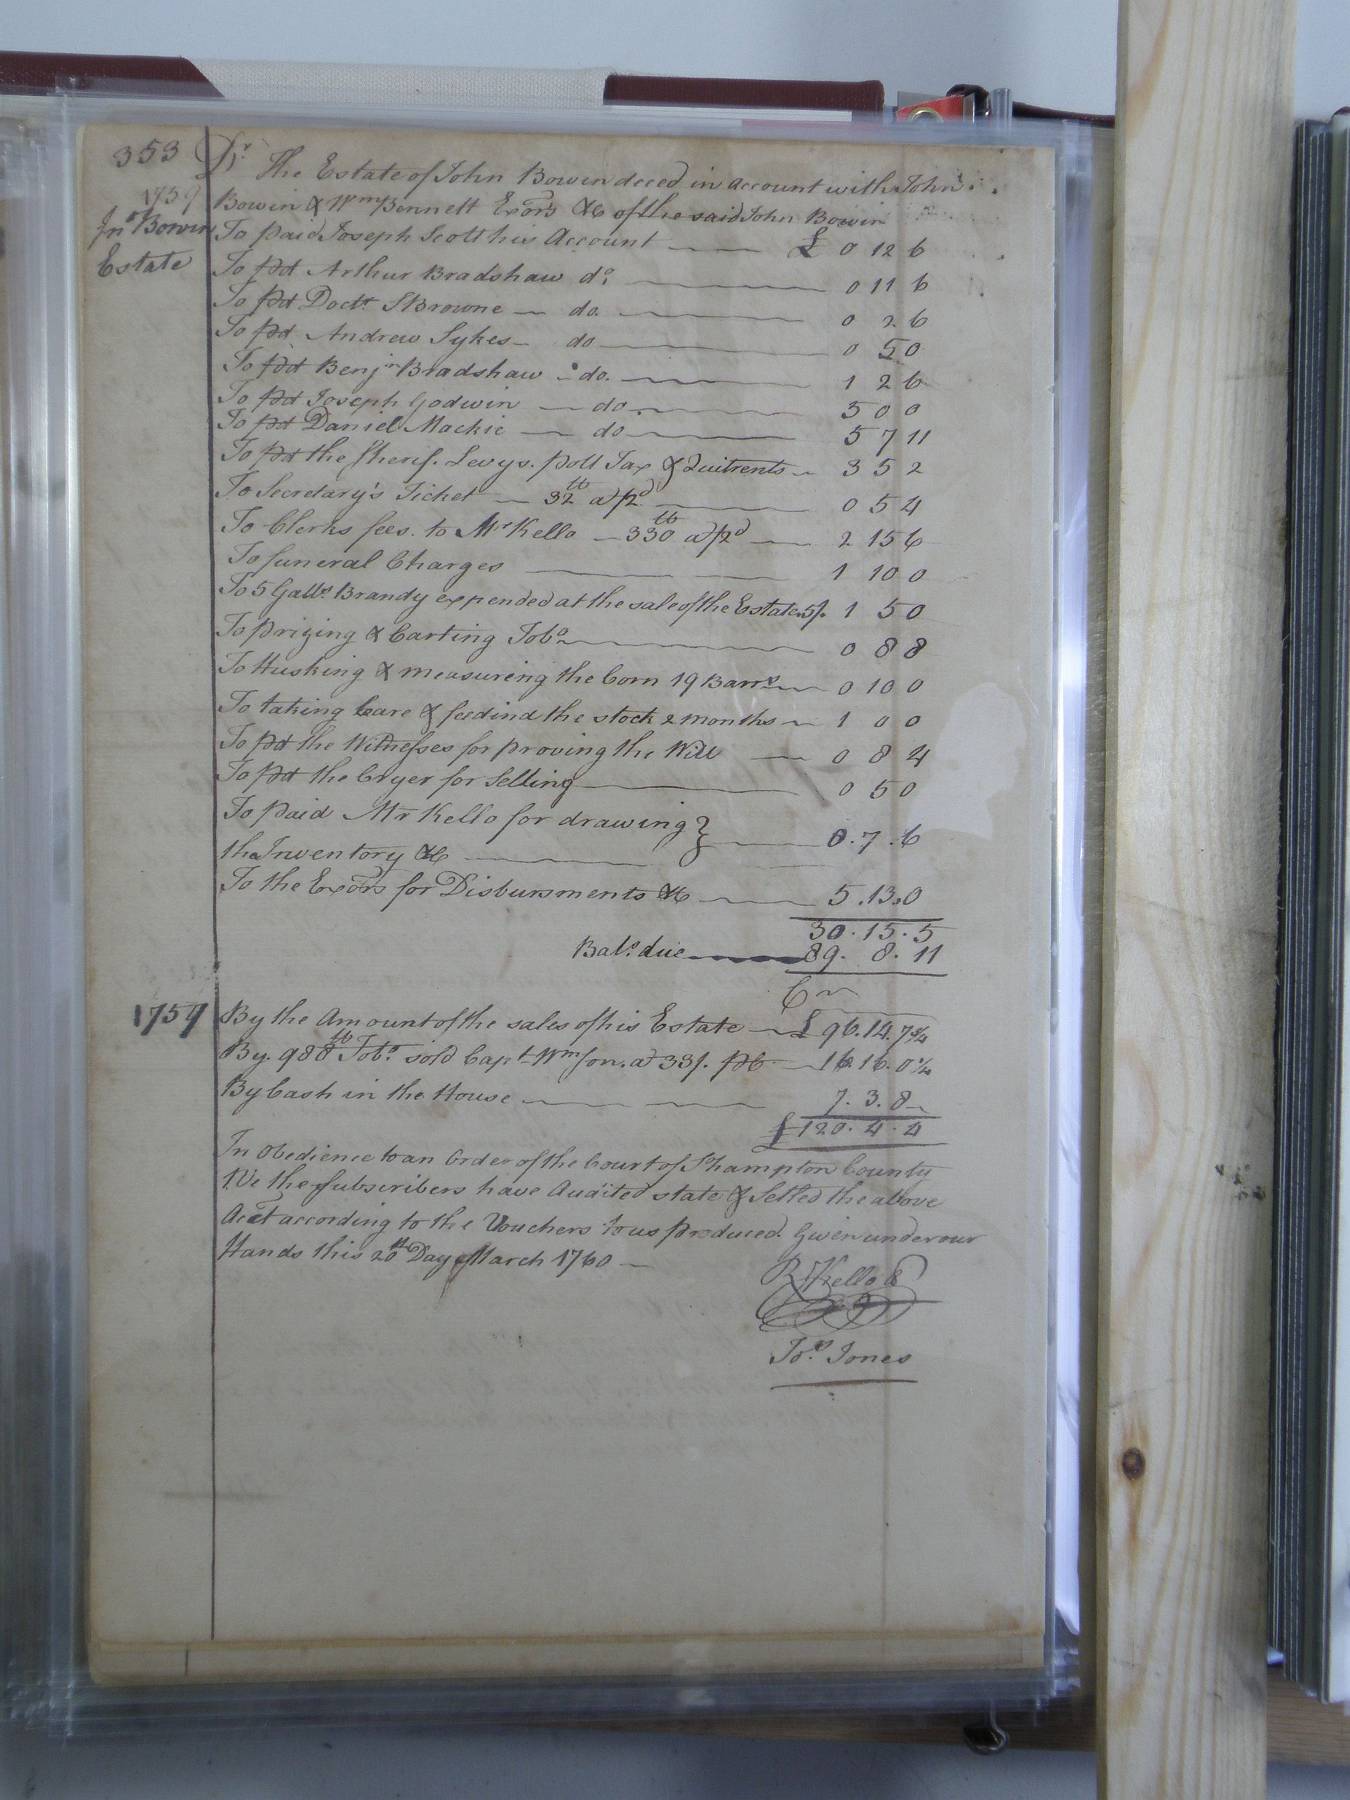 353 Dr. The Estate of John Bowin deced in account with John
1759 Bowin & Wm Bennett Exors &c of the said John Bowin
Jno Bowin To paid Joseph Scott his Account £ 0 12 6
Estate To pd Arthur Bradshaw do. 0 11 6
To pd Doctr. S Browne do. 0 2 6
To pd Andrew Sykes do 0 5 0
To pd Benjn Bradshaw do. 1 2 6
To pd Joseph Godwin do. 5 0 0
To pd Daniel Mackie do 5 7 11
To pd the Sherif. Levys. poll Tax & Quitrents 3 5 2
To Secretary's Ticket 32 lb a/2d 0 5 4
To Clerks fees. to Mr Kello 330 lb a/2d 2 15 6
To funeral Charges 1 10 0
To 5 Galls. Brandy expended at the sale of the Estate 5/. 1 5 0
To Prizing & Carting Tobo. 0 8 8
To Husking & measureing the Corn 19 Barrs 0 10 0
To taking Care & feedind the stock 2 months 1 0 0
To pd the Witnesses for proving the Will 0 8 4
To pd the Cryer for Selling 0 5 0
To paid Mr Kello for drawing }
the Inventory &c 0.7.6
To the Exors for Disbursments &c 5.13.0
30.15.5
Bale. due 89. 8. 11
Cr
1759 By the Amount of the sales of his Estate £ 96.14.7¾
By. 988 lb Tobo. sold Capt Wmson. a 33/. pC 16.16.0¼
By Cash in the House 7. 3. 8
£ 120. 4. 4
In Obedience to an Order of the Court of S'hampton County
We the Subscribers have Audited state & Setled the above
Acct according to the Vouchers to us produced. Given under our
Hands this 20th Day March 1760
R. Kello
Jos. Jones